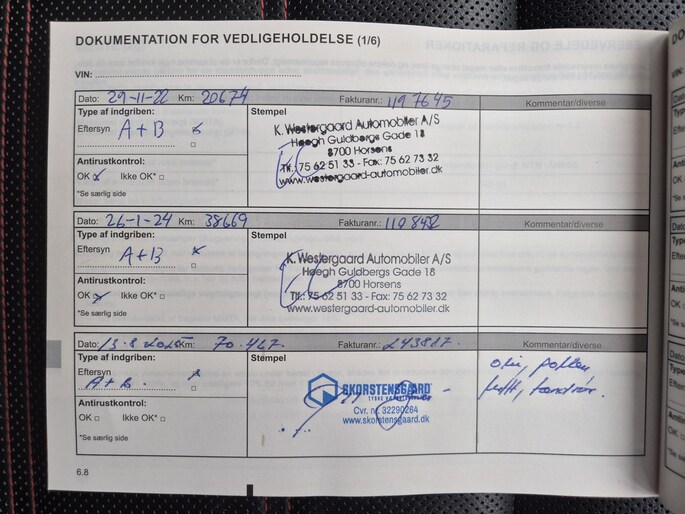 DOKUMENTATION FOR VEDLIGEHOLDELSE (1/6)
VIN:
Dato: 29-11-22 Km: 20674 Fakturanr.: 1197645 Kommentar/diverse
Type af indgriben:
Eftersyn A+B
Antirustkontrol:
OK Ikke OK*
*Se særlig side
Stempel
K. Westergaard Automobiler A/S
Høegh Guldbergs Gade 18
8700 Horsens
Tlf.: 75 62 51 33 - Fax: 75 62 73 32
www.westergaard-automobiler.dk
Dato: 26-1-24 Km: 38669 Fakturanr.: Kommentar/diverse
Type af indgriben:
Eftersyn A+B
Antirustkontrol:
OK Ikke OK*
*Se særlig side
Stempel
K. Westergaard Automobiler A/S
Høegh Guldbergs Gade 18
8700 Horsens
Tlf.: 75 62 51 33 - Fax: 75 62 73 32
www.westergaard-automobiler.dk
Dato: 13.8 2025 Km: 70.467 Fakturanr.: Kommentar/diverse
Type af indgriben:
Eftersyn A+B.
Antirustkontrol:
OK Ikke OK*
*Se særlig side
Stempel
SKORSTENSGAARD
Cvr. nr. 32290264
www.skorstensgaard.dk
olie, pollen
luft, tændrør.
6.8